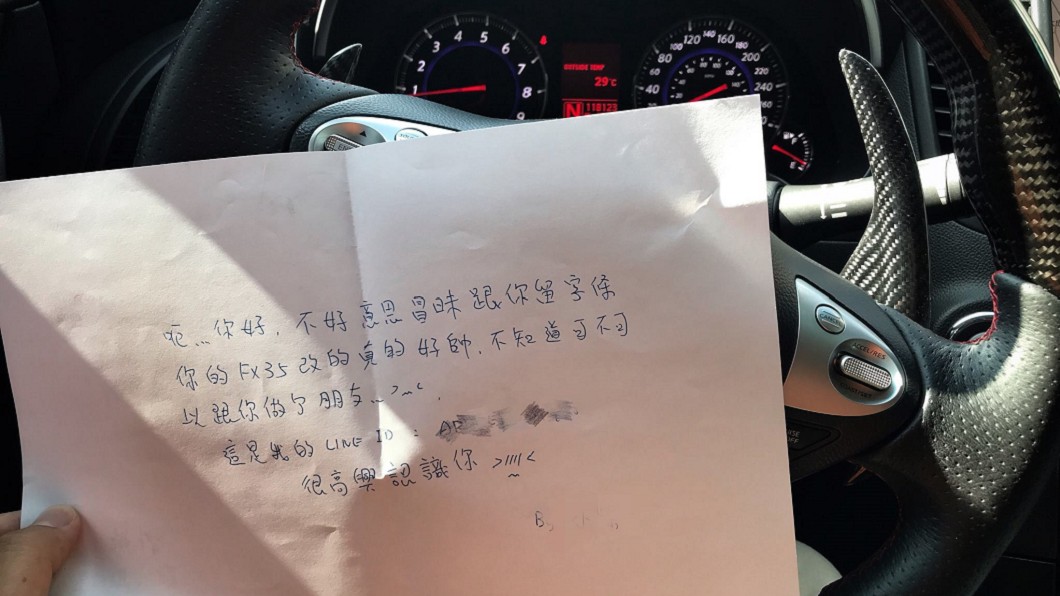 3 4 5 6
2 7
1 8
OUTSIDE TEMP
29°C
N 118123
100 120 140 160 180
80 200
60 220
40 240
260
E
呃...你好,不好意思冒昧跟你留字條
你的FX35改的真的好帥,不知道可不可
以跟你做个朋友...>~<.
這是我的 LINE ID:
很高興認識你 >////<
B
CANCEL
ACCEL/RES